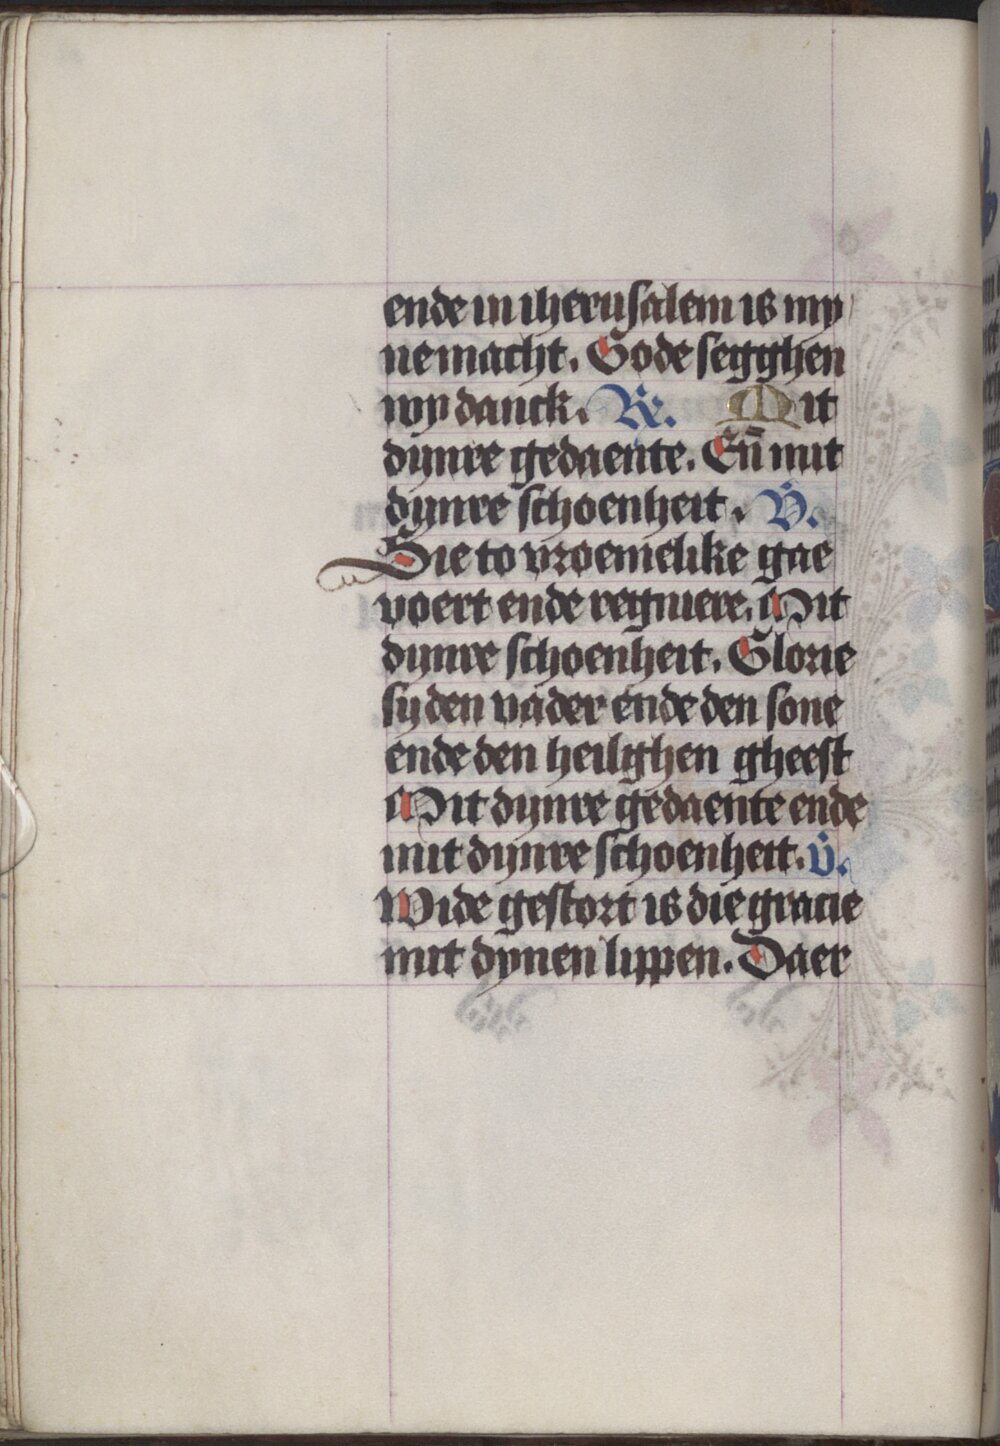 ende in iherusalem is my
ne macht. Gode segghen
wy danck. R̷. Mit
dijnre gedaente. En̄ mit
dijnre schoenheit. V̷.
Sie to vroemelike gae
voert ende regniere. Mit
dijnre schoenheit. Glorie
sy den vader ende den sone
ende den heilighen gheest
Mit dijnre gedaente ende
mit dijnre schoenheit. v̷.
Wide gestort is die gracie
mit dynen lippen. Daer